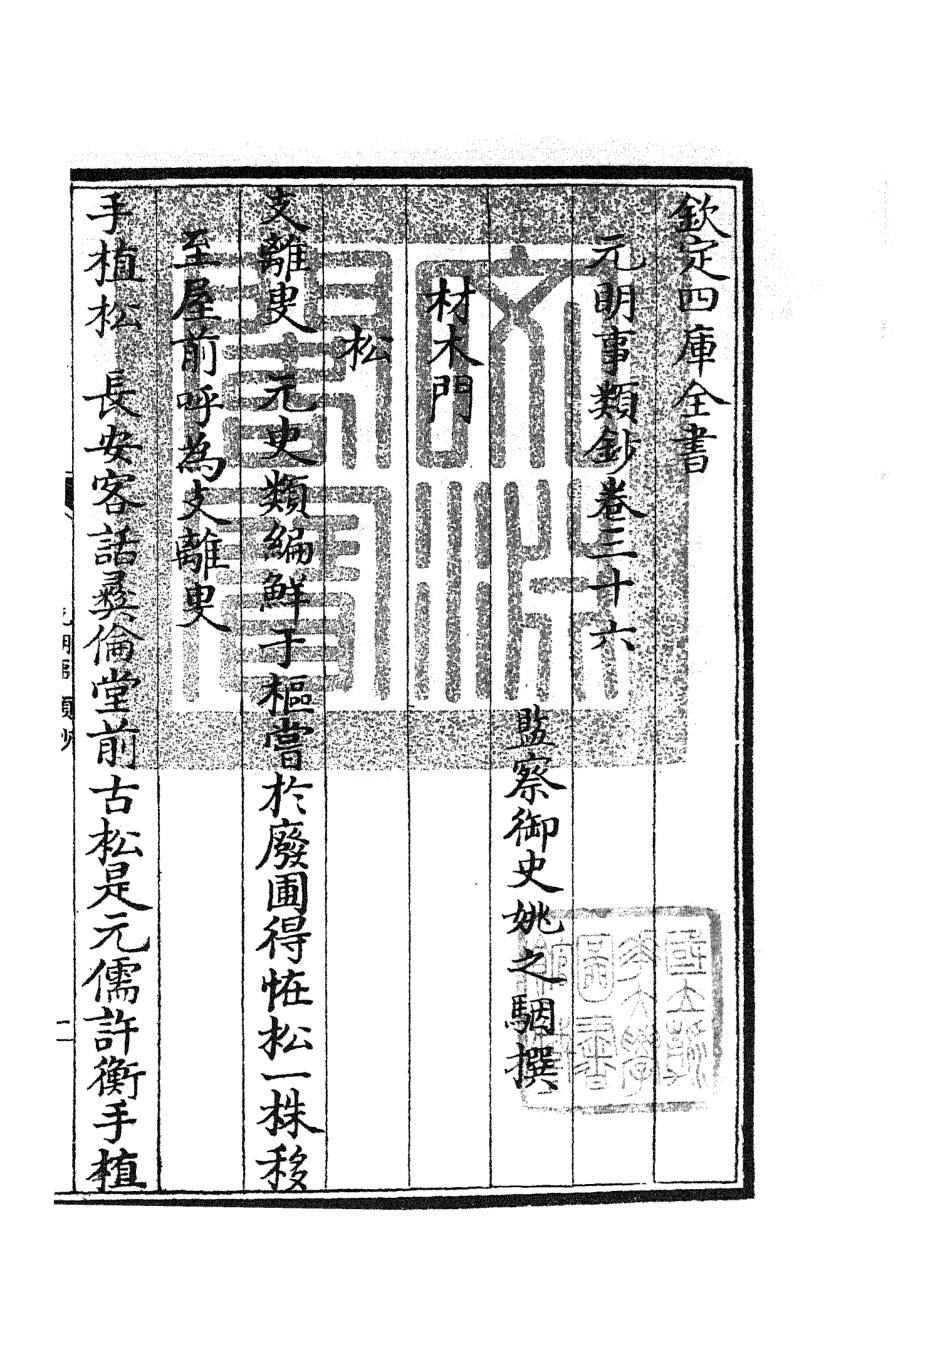 欽定四庫全書
元明事類鈔卷三十六
監察御史姚之駰撰
材木門
松
支離叟 元史類編鮮于樞嘗於廢圃得恠松一株移
至屋前呼為支離叟
手植松 長安客話彞倫堂前古松是元儒許衡手植